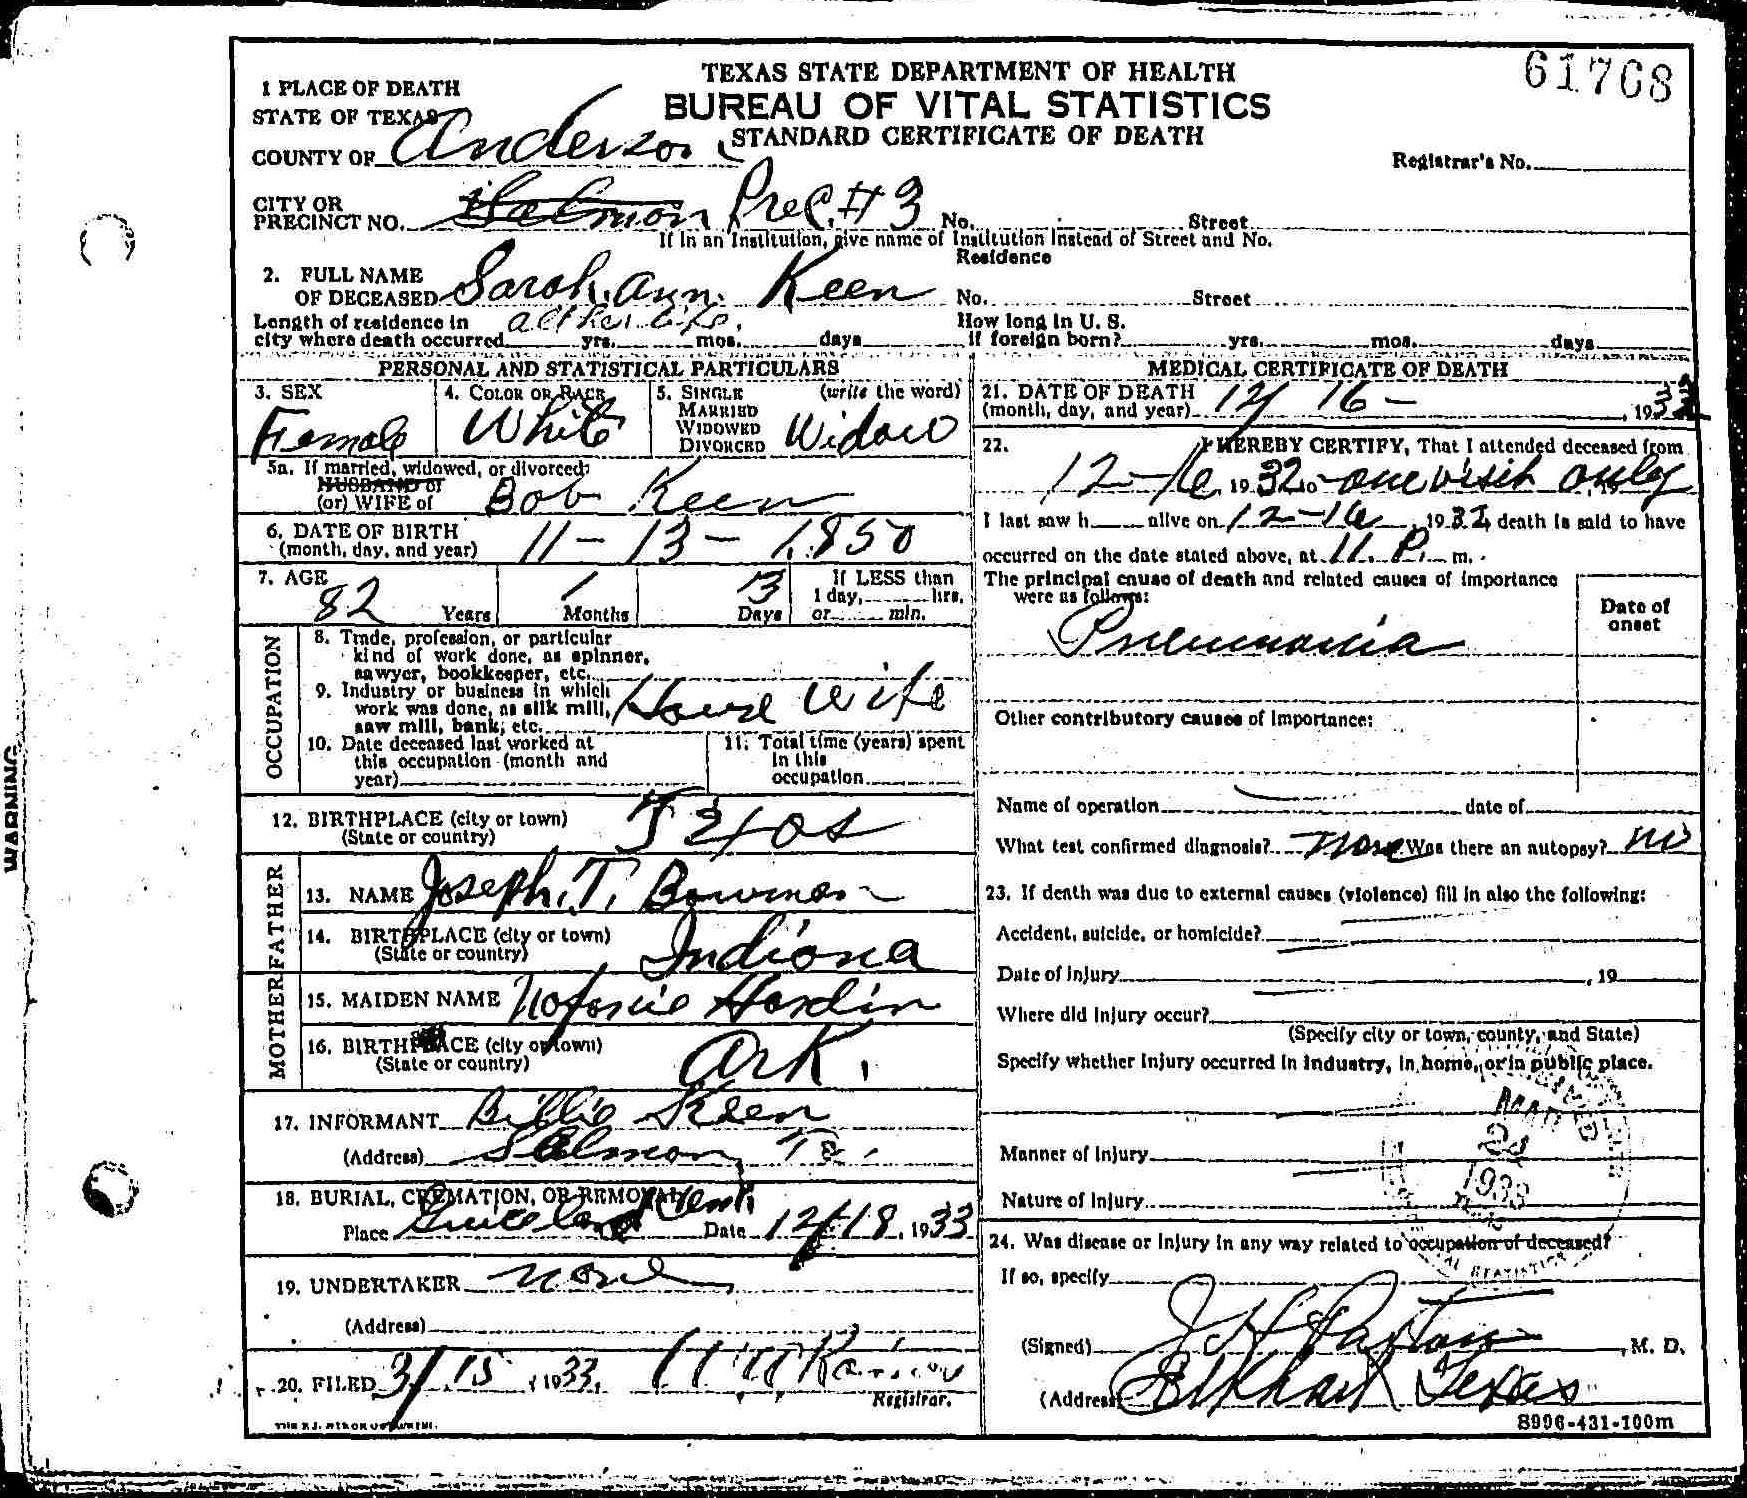 61768
TEXAS STATE DEPARTMENT OF HEALTH
BUREAU OF VITAL STATISTICS
STANDARD CERTIFICATE OF DEATH
1 PLACE OF DEATH
STATE OF TEXAS
COUNTY OF Anderson
Registrar's No.
CITY OR
PRECINCT NO. Salmon Prec. # 3 No. Street
If in an Institution, give name of Institution instead of Street and No.
Residence
2. FULL NAME
OF DECEASED Sarah Ann Keen No. Street
Length of residence in all her life.
city where death occurred yrs. mos. days
How long in U. S.
if foreign born? yrs. mos. days
PERSONAL AND STATISTICAL PARTICULARS
3. SEX Female
4. COLOR OR RACE White
5. SINGLE (write the word)
MARRIED
WIDOWED
DIVORCED Widow
5a. If married, widowed, or divorced:
HUSBAND of
(or) WIFE of Bob Keen
6. DATE OF BIRTH
(month, day, and year) 11-13-1850
7. AGE
82 Years 1 Months 3 Days
If LESS than
1 day, hrs.
or min.
OCCUPATION
8. Trade, profession, or particular
kind of work done, as spinner,
sawyer, bookkeeper, etc.
9. Industry or business in which
work was done, as silk mill,
saw mill, bank, etc. House Wife
10. Date deceased last worked at
this occupation (month and
year)
11. Total time (years) spent
in this
occupation
12. BIRTHPLACE (city or town)
(State or country) Texas
FATHER
13. NAME Joseph. T. Bowman
14. BIRTHPLACE (city or town)
(State or country) Indiana
MOTHER
15. MAIDEN NAME Hardin
16. BIRTHPLACE (city or town)
(State or country) Ark.
17. INFORMANT Billie Keen
(Address) Salmon, Tx.
18. BURIAL, CREMATION, OR REMOVAL
Place Cem. Date 12/18, 1933
19. UNDERTAKER none
(Address)
20. FILED 3/15, 1933.
Registrar.
MEDICAL CERTIFICATE OF DEATH
21. DATE OF DEATH
(month, day, and year) 12/16- , 193
22. I HEREBY CERTIFY, That I attended deceased from
12-16, 1932 to one visit only, 19
I last saw h alive on 12-16, 1932, death is said to have
occurred on the date stated above, at 11 P. m.
The principal cause of death and related causes of importance
were as follows:
Date of
onset
Pneumonia
Other contributory causes of importance:
Name of operation date of
What test confirmed diagnosis? none Was there an autopsy? no
23. If death was due to external causes (violence) fill in also the following:
Accident, suicide, or homicide?
Date of injury , 19
Where did injury occur?
(Specify city or town, county, and State)
Specify whether injury occurred in industry, in home, or in public place.
Manner of injury
Nature of injury
MAR
1933
24. Was disease or injury in any way related to occupation of deceased?
If so, specify
(Signed) J H Paxton, M. D.
(Address) Elkhart Texas
8996-431-100m
WARNING